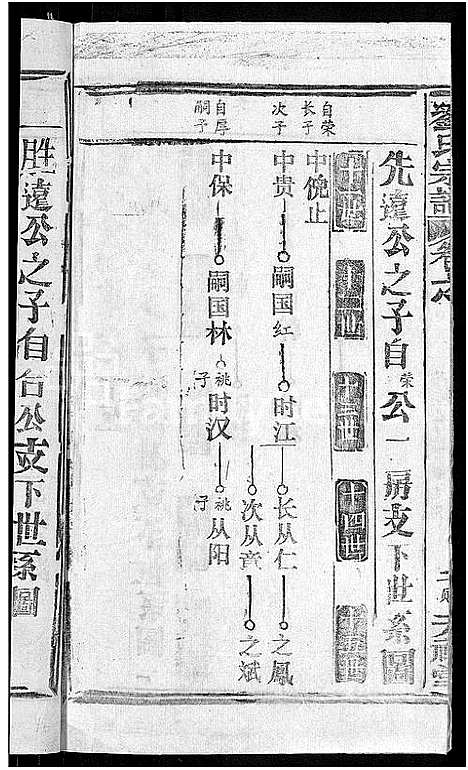 劉氏宗譜
先達公之子自荣公一房支下世系圖
十一世
十二世
十三世
十四世
十五世
自荣
长子
中倪止
次子
中贵 嗣国红 时江 长从仁 之鳳
次从章 之斌
自厚
嗣子
中保 嗣国林 祧子 时汉 祧子 从阳
胜達公之子自台公支下世系圖